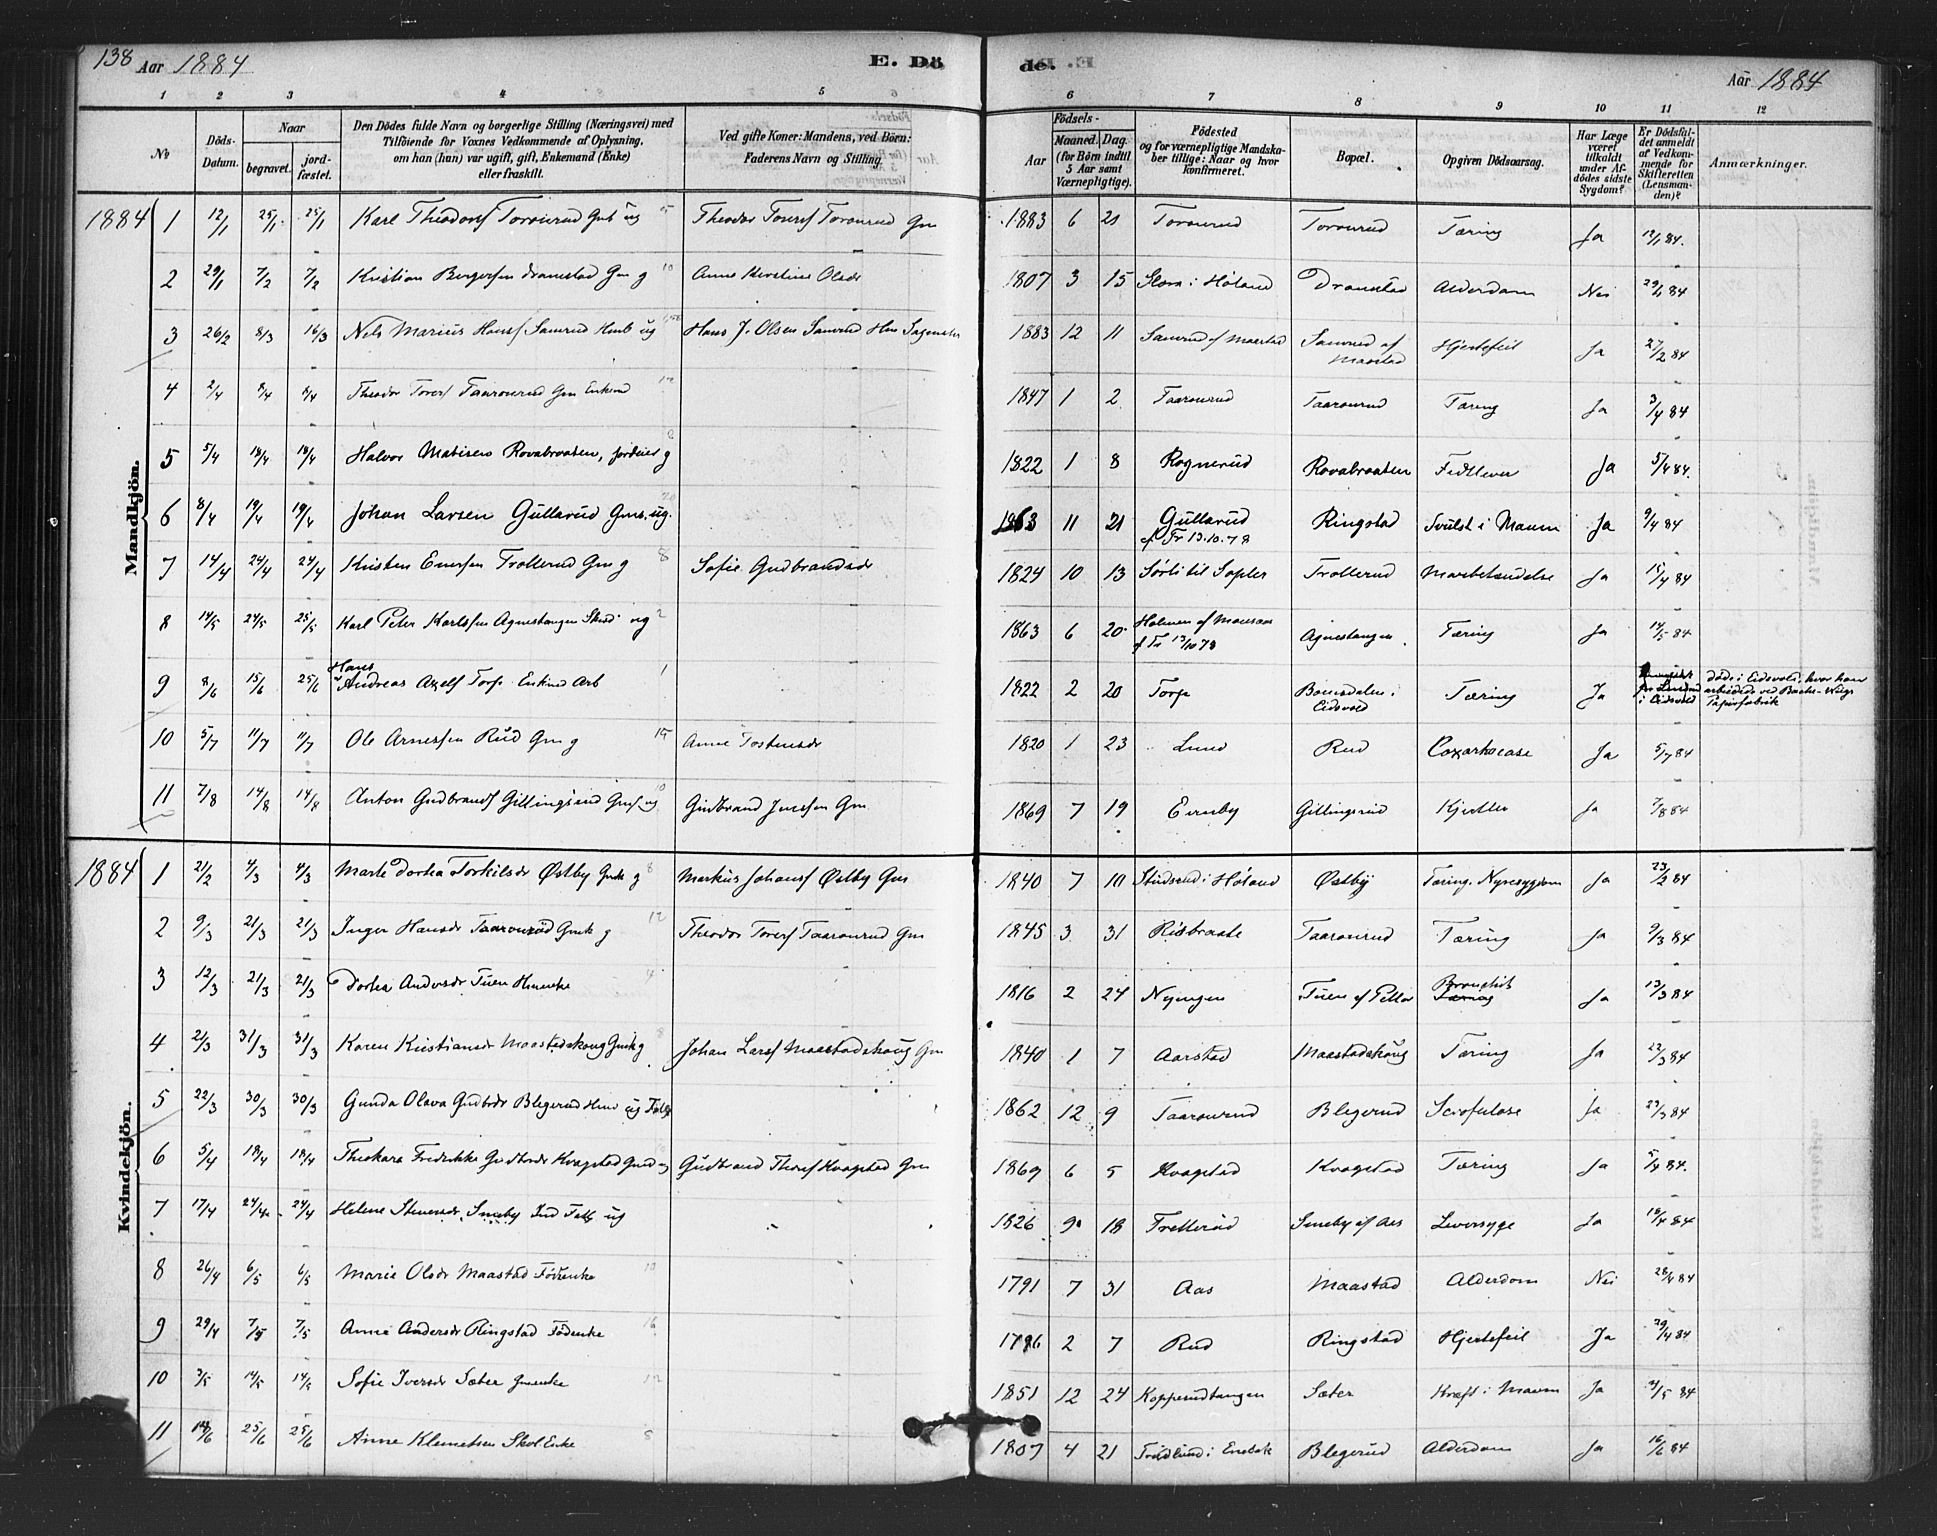 138 Aar 1884 E. Dö de. Aar 1884
1 2 3 4 5 6 7 8 9 10 11 12
No Döds-Datum. Naar begravet. jord-fæstet. Den Dödes fulde Navn og borgerlige Stilling (Næringsvei) med Tilföiende for Voxnes Vedkommende af Oplysning, om han (hun) var ugift, gift, Enkemand (Enke) eller fraskilt. Ved gifte Koner: Mandens, ved Börn: Faderens Navn og Stilling. Födsels- Aar Maaned. Dag. (for Börn indtil 5 Aar samt Værnepligtige). Födested og for værnepligtige Mandskaber tillige: Naar og hvor konfirmeret. Bopæl. Opgiven Dödsaarsag. Har Læge været tilkaldt under Afdödes sidste Sygdom? Er Dödsfaldet anmeldt af Vedkommende for Skifteretten (Lensmanden)? Anmærkninger.
Mandkjön.
1884 1 12/1 25/1 25/1 Karl Theodorsf Torourud Gmb ug Theodor Toresf Torourud Gm 1883 6 21 Torourud Torourud Tæring Ja 12/1 84.
2 29/1 7/2 7/2 Kristian Borgersen Dramstad Gm g 10 Anne Kirstine Olsdr 1807 3 15 i Höland Dramstad Alderdom Nei 29/1 84
3 26/2 8/3 16/3 Nels Marius Hansf Samrud Hmb ug Hans J. Olsen Samrud Hm 1883 12 11 Samrud af Maastad Samrud af Maastad Hjertefeil Ja 27/2 84
4 2/4 8/4 8/4 Theodor Toresf Taarourud Gm Enkem 12 1847 1 2 Taarourud Taarourud Tæring Ja 3/4 84
5 5/4 18/4 18/4 Halvor Matisen Rovabraaten, g 8 1822 1 8 Rognerud Rovabraaten Fedtlever Ja 5/4 84.
6 8/4 19/4 19/4 Johan Larsen Gullerud Gms. ug. 20 1863 11 21 Gullerud cf Tr 13.10.78 Ringstad Svulst i Maven Ja 9/4 84
7 14/4 24/4 24/4 Kristen Enersen Trollerud Gm g 8 Sofie Gudbrandsdr 1824 10 13 Sörli til Trollerud Marbetændelse Ja 15/4 84
8 14/5 24/5 25/5 Karl Peter Karlsen Agnestangen ug 2 1863 6 20 Holmen af cf Tr 13/10 78 Agnestangen Tæring Ja 14/5 84
9 8/6 15/6 25/6 Hans Andreas Axelf Torp Enkem Arb 1 1822 2 20 Torp i Eidsvold Tæring Ja i Eidsvold döde i Eidsvold, hvor han arbeidede ved Papirfabrik
10 5/7 11/7 11/7 Ole Arnesen Rud Gm g 15 Anne Tostensdr 1820 1 23 Lund Rud Coxarhocase Ja 5/7 84
11 7/8 14/8 14/8 Anton Gudbrandsf Gillingsrud Gms ug 10 Gudbrand Jenssen Gm 1869 7 19 Eirnby Gillingsrud Kjertler Ja 7/8 84
Kvindekjön.
1884 1 21/2 4/3 4/3 Marte Dortea Torkilsdr Østby Gmk g 8 Markus Johansf Østby Gm 1840 7 10 i Höland Østby Tæring. Nyresygdom Ja 23/2 84
2 9/3 21/3 21/3 Inger Hansdr Taarourud Gmk g 12 Theodor Toresf Taarourud Gm 1845 3 31 Risbraate Taarourud Tæring Ja 9/3 84
3 12/3 21/3 21/3 Dortea Andersdr Tuen Hmenke 4 1816 2 24 Nyingen Tuen af Bronchit Tæring Ja 13/3 84
4 2/3 31/3 31/3 Karen Kristiansdr Maastadskoug Gmk g Johan Larsf Maastadskoug Gm 1840 1 7 Aarstad Maastadskoug Tæring Ja 22/3 84
5 22/3 30/3 30/3 Gunda Olava Gudbrdr Blegerud ug 1862 12 9 Taarourud Blegerud Scrofulose Ja 23/3 84
6 5/4 18/4 18/4 Theokara Fredrikke Gudbrdr Kvagstad ug Gudbrand Thoresf Kvagstad Gm 1869 6 5 Kvagstad Kvagstad Tæring Ja 5/4 84.
7 17/4 24/4 24/4 Helene Steversdr. Smeby Ind Fatt ug 1826 9 18 Trollerud Smeby af Aas Leversyge Ja 18/4 84
8 26/4 6/5 6/5 Marie Olsdr Maastad Föderenke 10 1791 7 31 Aas Maastad Alderdom Nei 28/4 84
9 29/4 7/5 7/5 Anne Andersdr Ringstad Föderenke 16 1796 2 7 Rud Ringstad Hjertefeil Ja 29/4 84
10 3/5 14/5 14/5 Sofie Iversdr Sæter Gmenke 12 1851 12 24 Kopperudtangen Sæter Kræft i Maven Ja 84
11 14/6 25/6 25/6 Anne Klemetsen Skol Enke 5 1807 4 21 i Enebak Blegerud Alderdom Ja 16/6 84